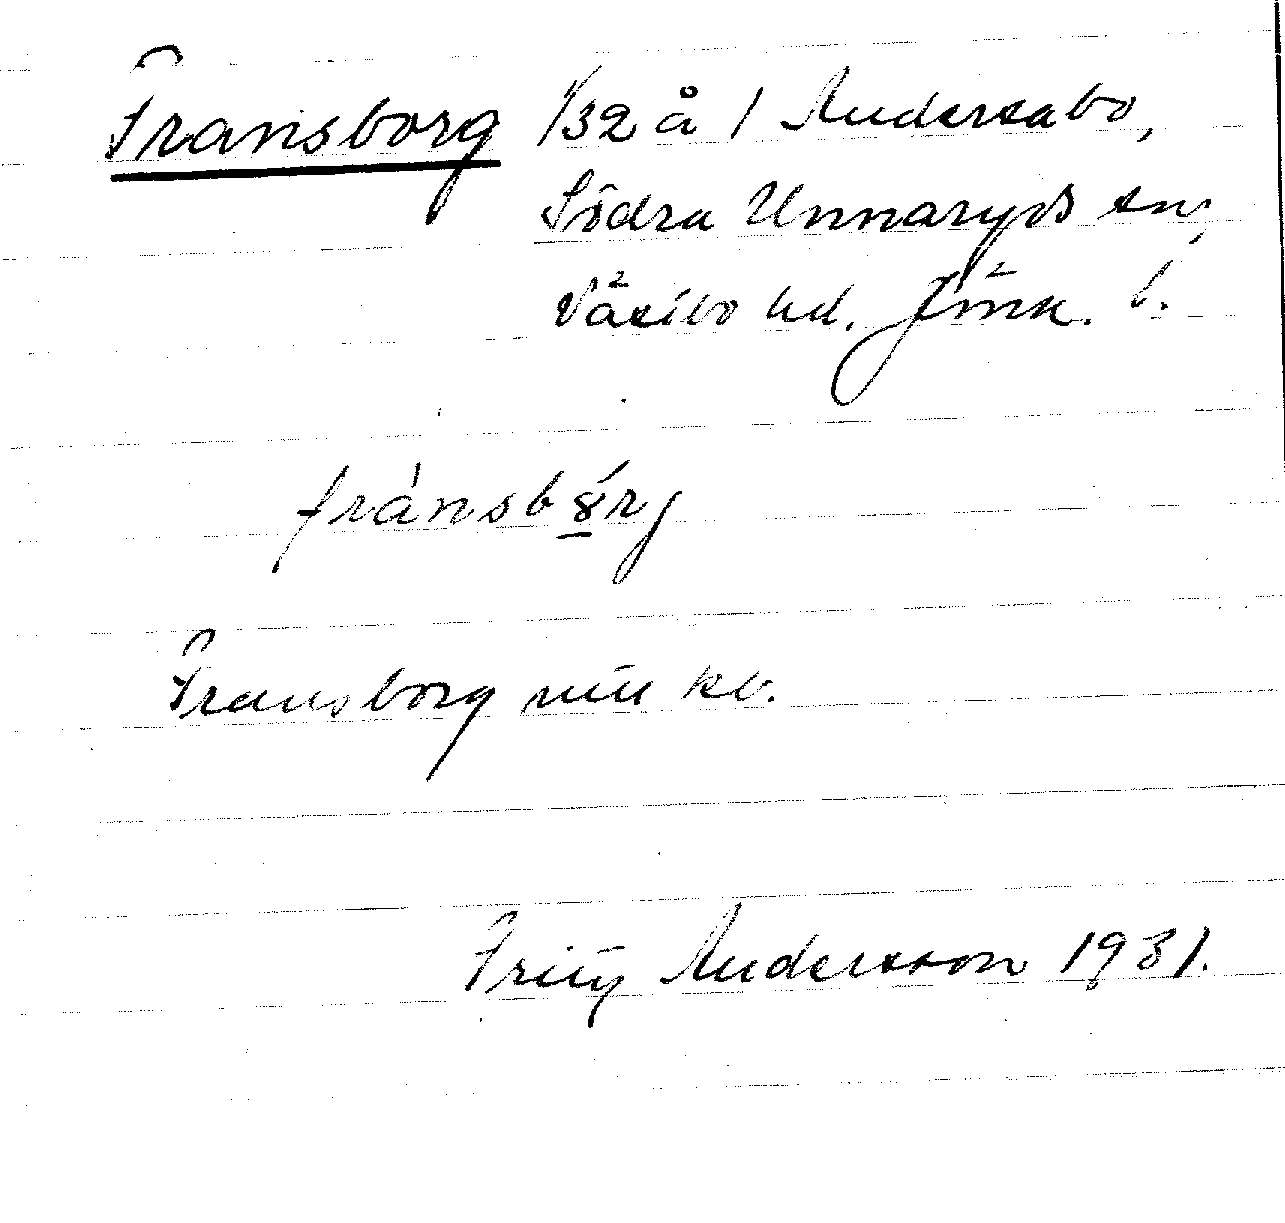 Fransborg 1/32 å 1 Andersabo,
Södra Unnaryds sn,
Västbo hd. Jönk. l.
fránsbórj
Fransborg mtl kb.
Fritz Andersson 1931.